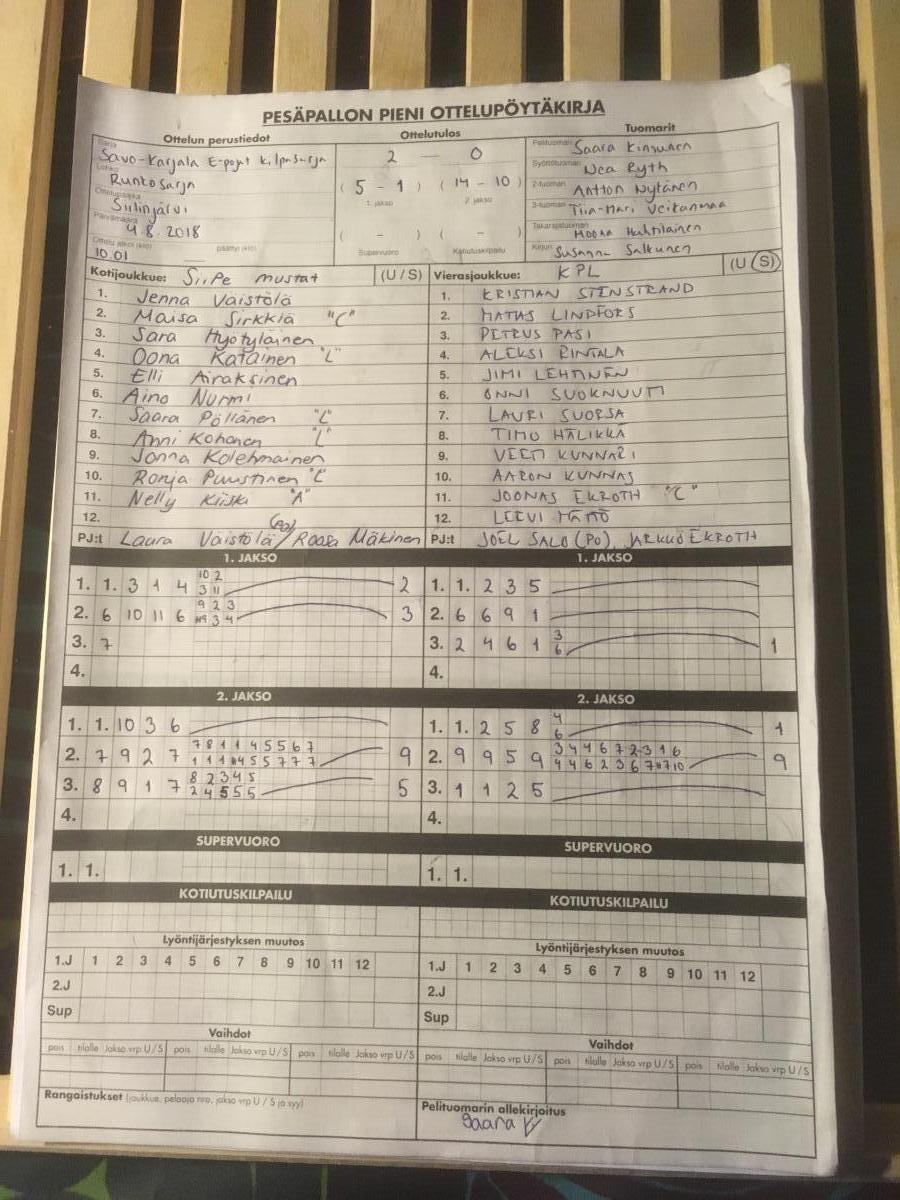 PESÄPALLON PIENI OTTELUPÖYTÄKIRJA
Ottelun perustiedot
Sarja
Savo-Karjala E-pojat kilpasarja
Lohko
Runkosarja
Ottelupaikka
Siilinjärvi
Päivämäärä
4.8.2018
Ottelu alkoi (klo) päättyi (klo)
10.01
Ottelutulos
2 — 0
( 5 - 1 ) ( 14 - 10 )
1. jakso 2. jakso
( - ) ( - )
Supervuoro Kotiutuskilpailu
Tuomarit
Pelituomari Saara Kinnunen
Syöttötuomari Nea Ryth
2-tuomari Anton Nylänen
3-tuomari Tiia-Mari Veikanmaa
Takarajatuomari Moona Huhtilainen
Kirjuri Susanna Salkunen
Kotijoukkue: SiiPe mustat (U/S)
1. Jenna Väistölä
2. Maisa Sirkkiä "C"
3. Sara Hyötyläinen
4. Oona Katainen "L"
5. Elli Airaksinen
6. Aino Nurmi
7. Saara Pöllänen "L"
8. Anni Kohonen "L"
9. Jonna Kolehmainen
10. Ronja Puustinen "L"
11. Nelly Kiiski "A"
12.
PJ:t Laura Väistölä (PO) / Roosa Mäkinen
Vierasjoukkue: KPL (U/S)
1. KRISTIAN STENSTRAND
2. MATIAS LINDFORS
3. PETRUS PASI
4. ALEKSI RINTALA
5. JIMI LEHTINEN
6. ONNI SUOKNUUTI
7. LAURI SUORSA
8. TIMO HÄLIKKÄ
9. VEETI KUNNARI
10. AARON KUNNAS
11. JOONAS EKROTH "C"
12. LEEVI
PJ:t JOEL SALO (PO) JARKKO EKROTH
1. JAKSO
1. 1. 3 1 4 10 2 2
3 11
2. 6 10 11 6 9 2 3 3
3 4
3. 7
4.
1. JAKSO
1. 1. 2 3 5
2. 6 6 9 1
3. 2 4 6 1 3 1
6
4.
2. JAKSO
1. 1. 10 3 6
2. 7 9 2 7 7 8 1 1 4 5 5 6 7 9
1 1 1 4 5 5 7 7 7
3. 8 9 1 7 8 2 3 4 5 5
2 4 5 5 5
4.
2. JAKSO
1. 1. 2 5 8 4 1
6
2. 9 9 5 9 3 4 4 6 7 2 3 1 6 9
4 4 6 2 3 6 7 7 10
3. 1 1 2 5
4.
SUPERVUORO
1. 1.
SUPERVUORO
1. 1.
KOTIUTUSKILPAILU
KOTIUTUSKILPAILU
Lyöntijärjestyksen muutos
1.J 1 2 3 4 5 6 7 8 9 10 11 12
2.J
Sup
Lyöntijärjestyksen muutos
1.J 1 2 3 4 5 6 7 8 9 10 11 12
2.J
Sup
Vaihdot
pois tilalle Jakso vrp U/S pois tilalle Jakso vrp U/S pois tilalle Jakso vrp U/S
Vaihdot
pois tilalle Jakso vrp U/S pois tilalle Jakso vrp U/S pois tilalle Jakso vrp U/S
Rangaistukset (joukkue, pelaaja nro, jakso vrp U / S ja syy)
Pelituomarin allekirjoitus
Saara